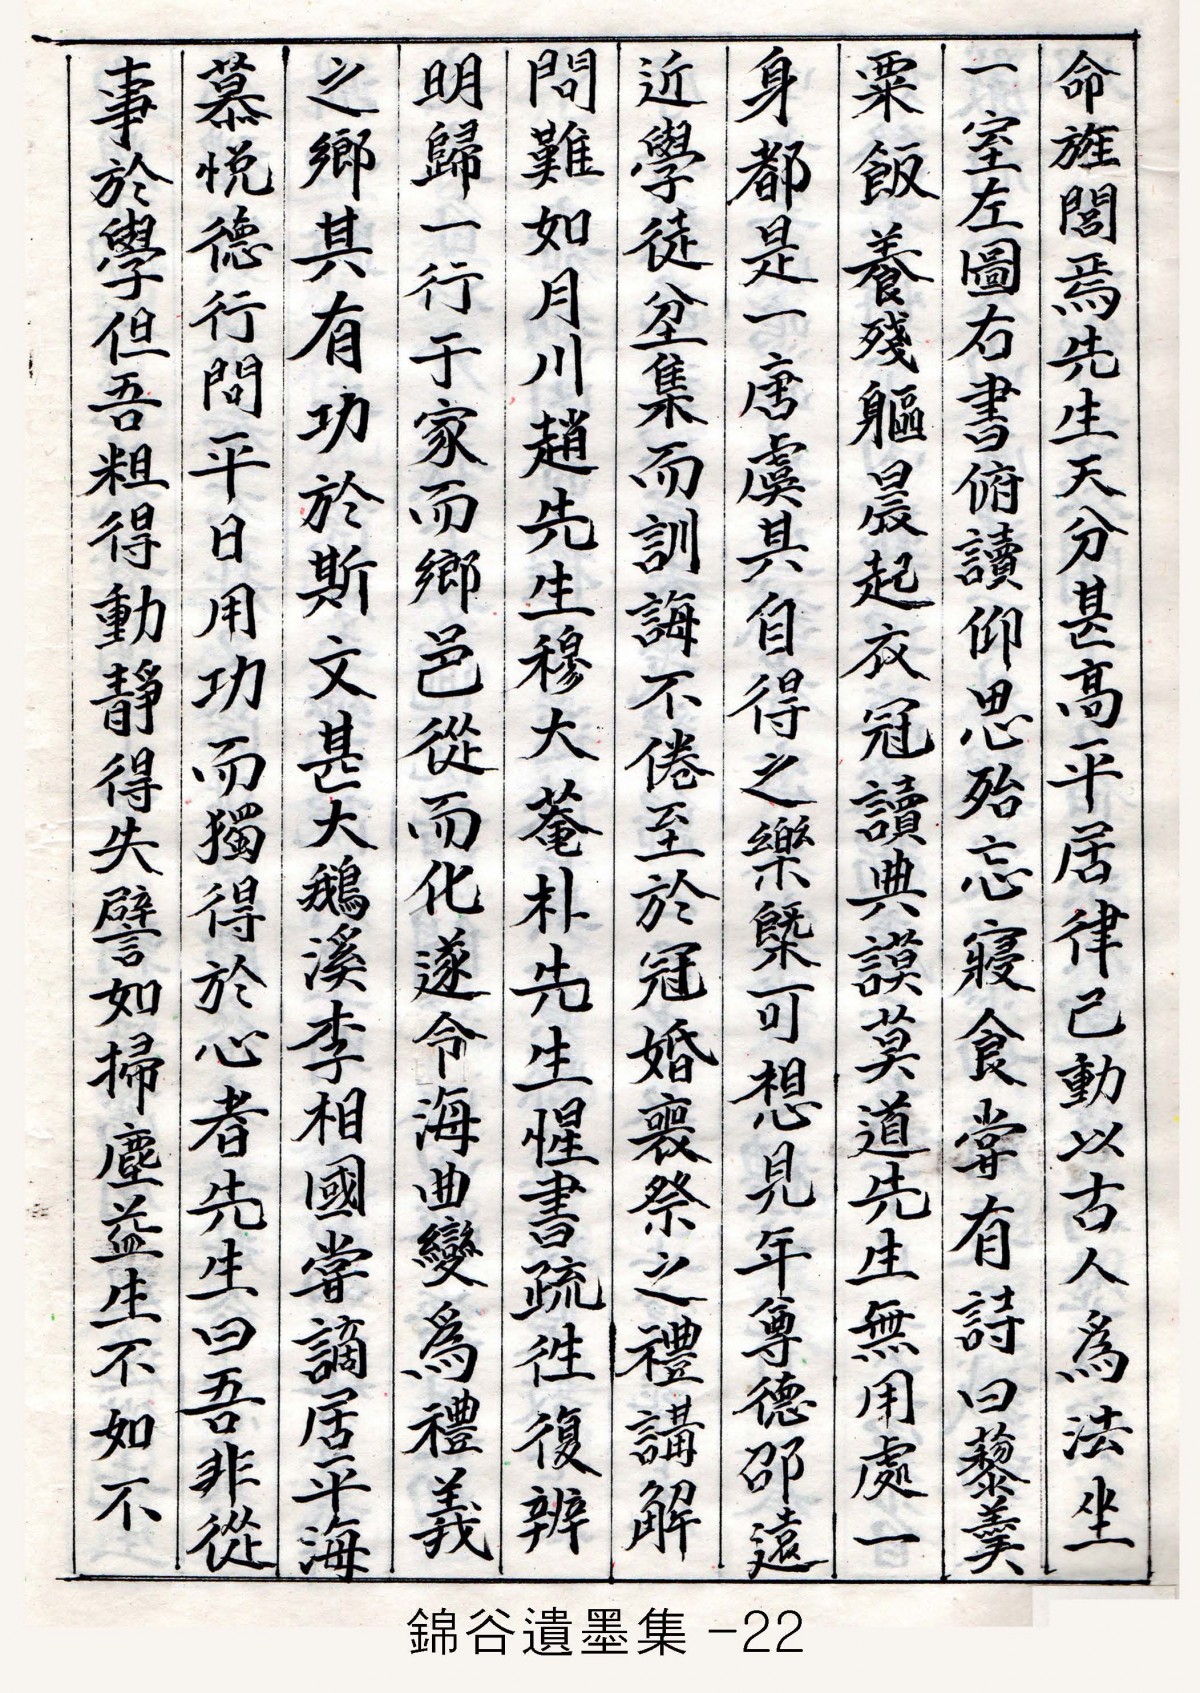 命旌閭焉先生天分甚高平居律己動以古人爲法坐
一室左圖右書俯讀仰思殆忘寢食嘗有詩曰藜羹
粟飯養殘軀晨起衣冠讀典謨莫道先生無用處一
身都是一唐虞其自得之樂槩可想見年尊德邵遠
近學徒坌集而訓誨不倦至於冠婚喪祭之禮講解
問難如月川趙先生穆大菴朴先生惺書疏徃復辨
明歸一行于家而鄉邑從而化遂令海曲變爲禮義
之鄉其有功於斯文甚大鵝溪李相國嘗謫居平海
慕悅德行問平日用功而獨得於心者先生曰吾非從
事於學但吾粗得動靜得失譬如掃塵益生不如不
錦谷遺墨集 -22